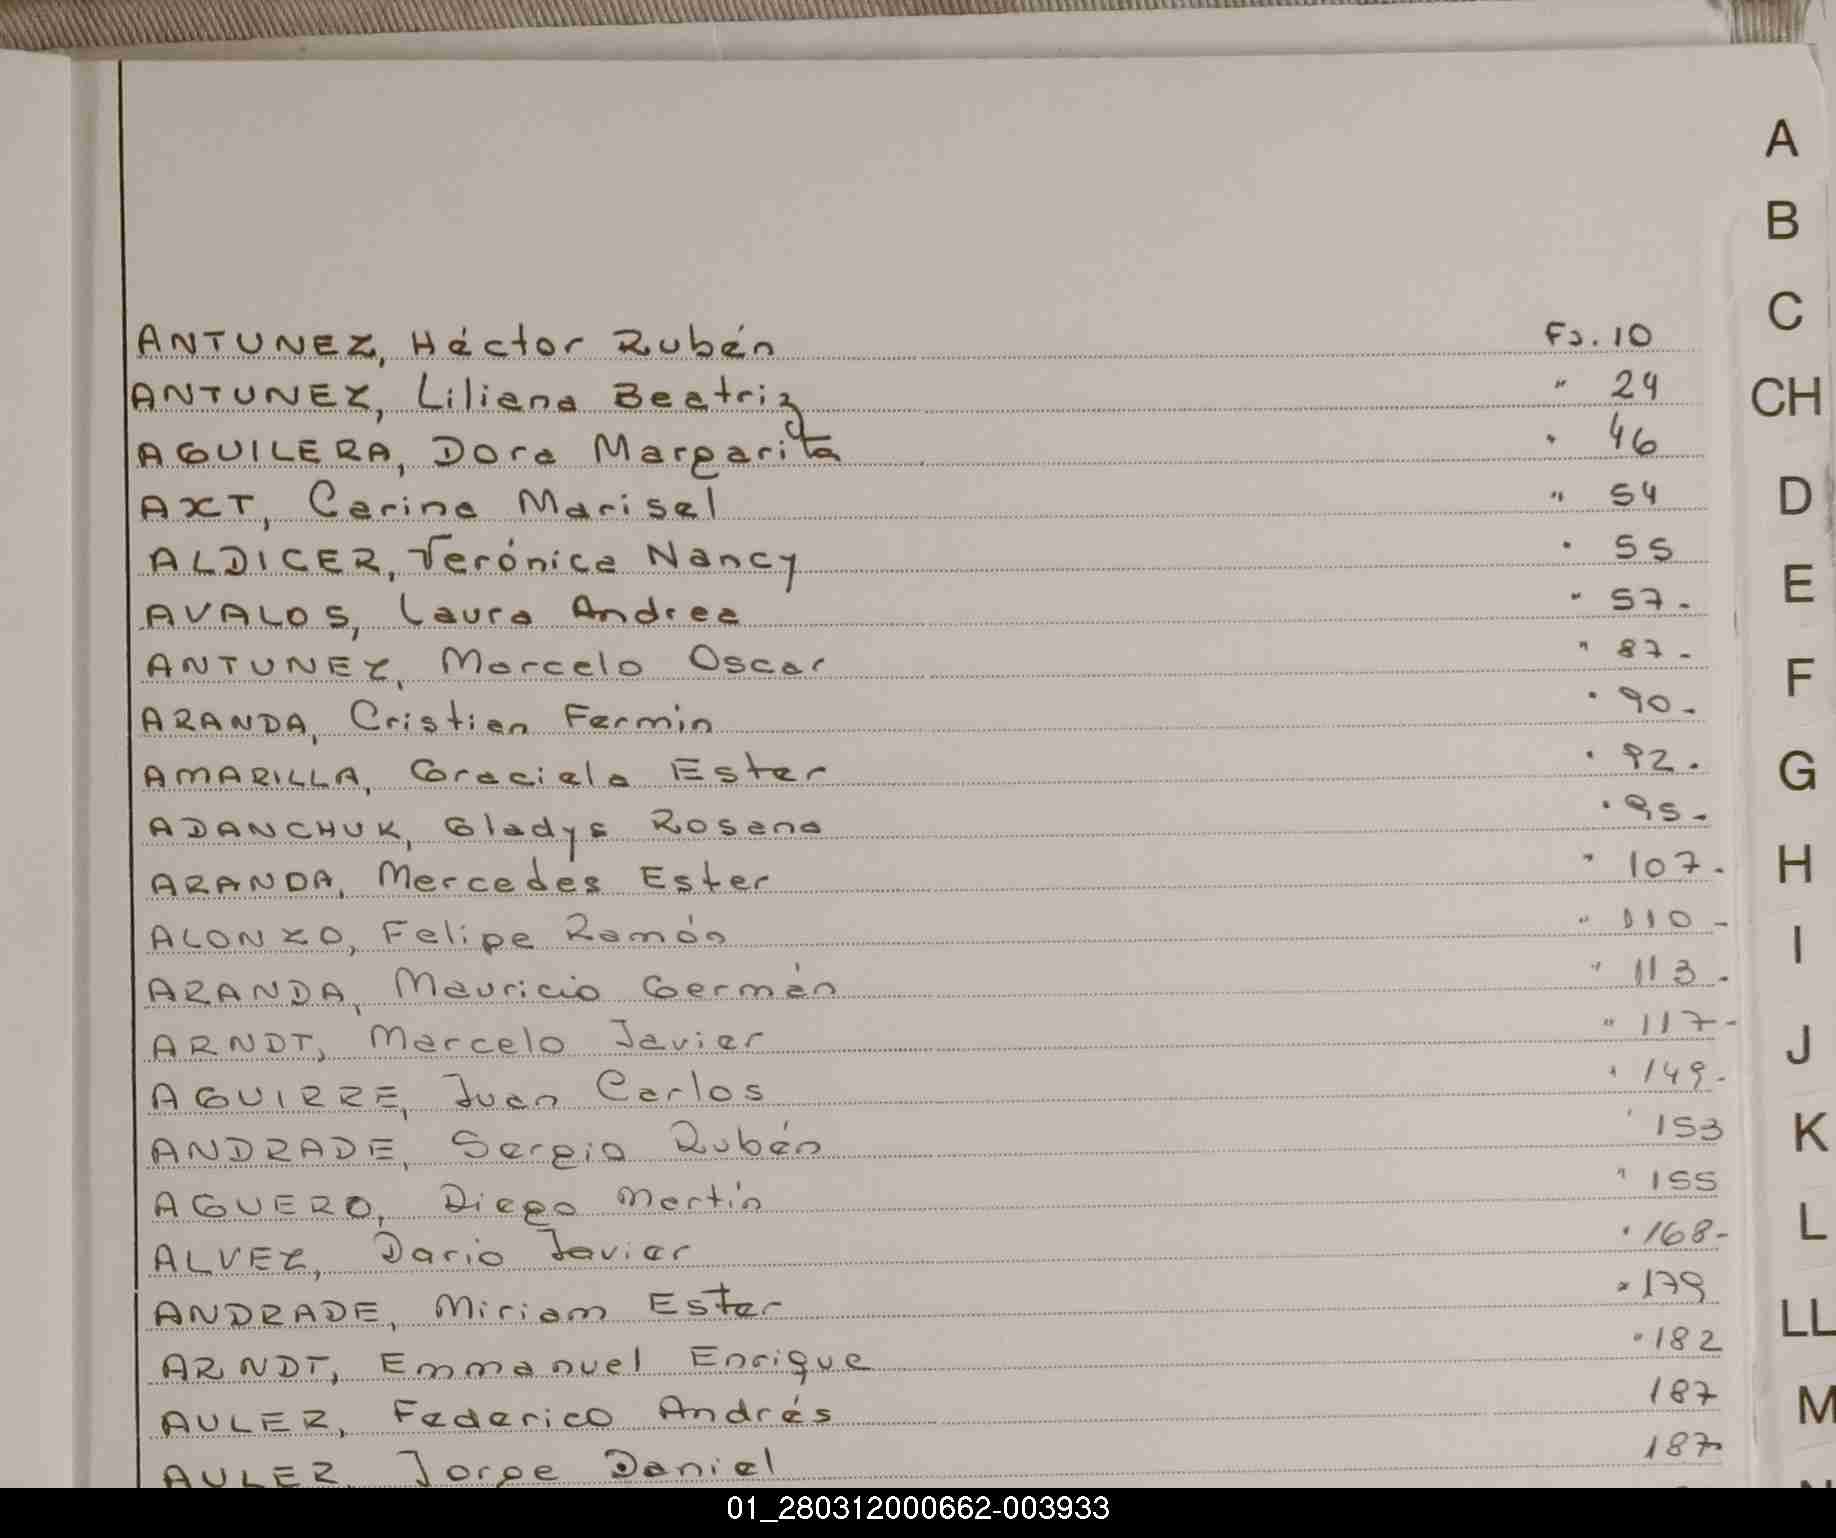 A
B
C
ANTUNEZ, Héctor Rubén Fs. 10
ANTUNEZ, Liliana Beatriz " 24
CH
AGUILERA, Dora Margarita " 46
AXT, Carina Marisel " 54
D
ALDICER, Verónica Nancy " 55
E
AVALOS, Laura Andrea " 57-
ANTUNEZ, Marcelo Oscar " 87-
F
ARANDA, Cristian Fermin " 90-
AMARILLA, Graciela Ester " 92-
G
ADANCHUK, Gladys Rosana " 95-
ARANDA, Mercedes Ester " 107-
H
ALONZO, Felipe Ramón " 110-
I
ARANDA, Mauricio Germán " 113-
ARNDT, Marcelo Javier " 117-
J
AGUIRRE, Juan Carlos " 149-
ANDRADE, Sergio Rubén " 153
K
AGUERO, Diego Martín " 155
L
ALVEZ, Dario Javier " 168-
ANDRADE, Miriam Ester " 179
LL
ARNDT, Emmanuel Enrique " 182
AULER, Federico Andrés 187
M
AULER, Jorge Daniel 187
01_280312000662-003933